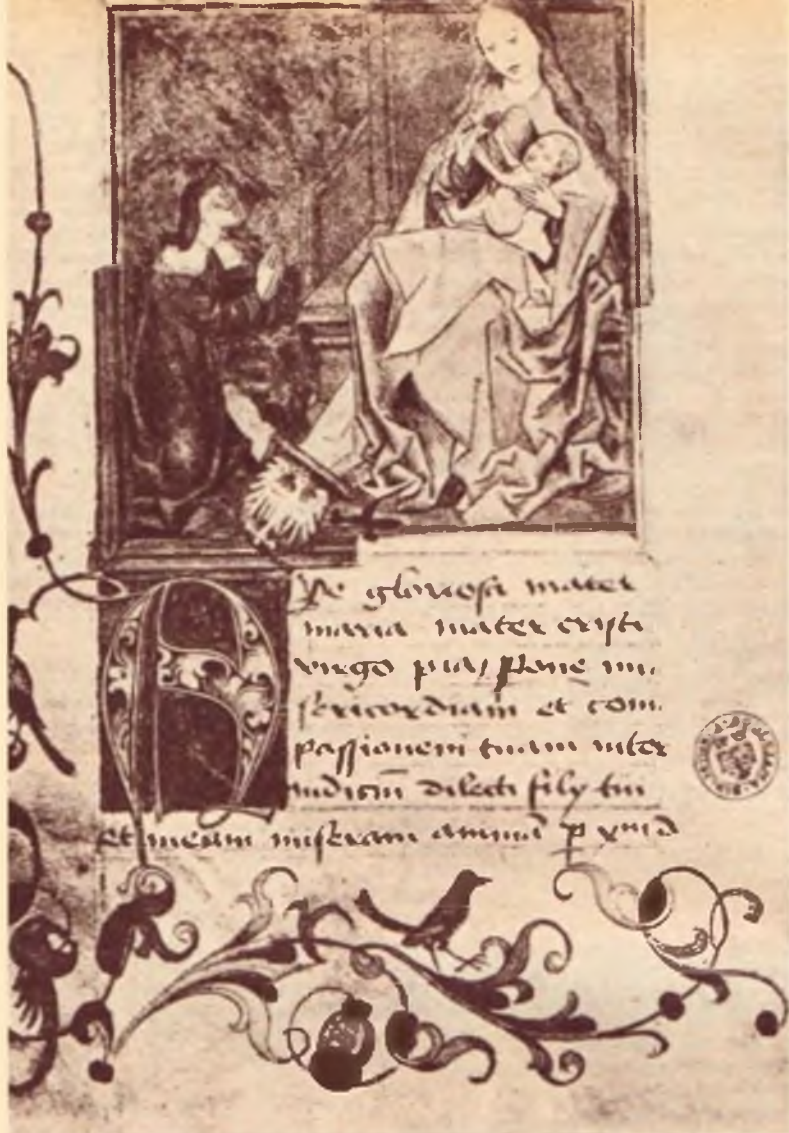 Ave gloriosa mater
maria mater cristi
virgo pia / pone mi
sericordiam et com
passionem tuam inter
iudiciū dilecti filÿ tui
et meam miseram animā